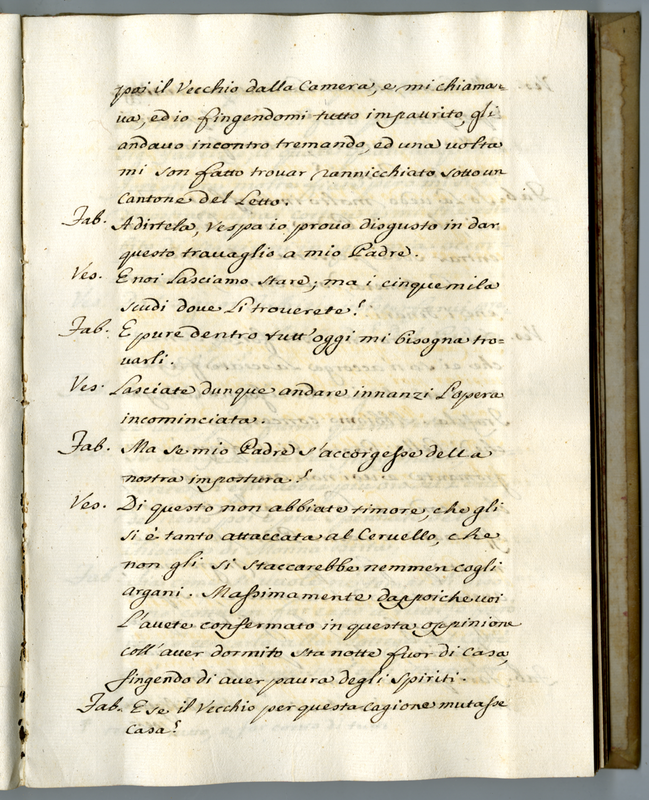 pai il Vecchio dalla Camera, e mi chiama=
va, ed io fingendomi tutto impaurito, gli
andavo incontro tremando, ed una volta
mi son fatto trovar rannicchiato sotto un
Cantone del Letto.
Fab. A dirtela, Vespa io provo disgusto in dar
questo travaglio a mio Padre.
Ves. E noi Lasciamo stare; ma i cinque mila
scudi dove Li troverete?
Fab. E pure dentro tutt'oggi mi bisogna tro=
varli.
Ves. Lasciate dunque andare innanzi L'opera
incominciata.
Fab. Ma se mio Padre s'accorgesse della
nostra impostura?
Ves. Di questo non abbiate timore, che gli
si è tanto attaccata al Cervello, che
non gli si staccarebbe nemmen cogli
argani. Massimamente dappoiche voi
L'avete confermato in questa oppinione
coll'aver dormito sta notte fuor di Casa,
fingendo di aver paura degli Spiriti.
Fab. E se il Vecchio per questa cagione mutasse
Casa?